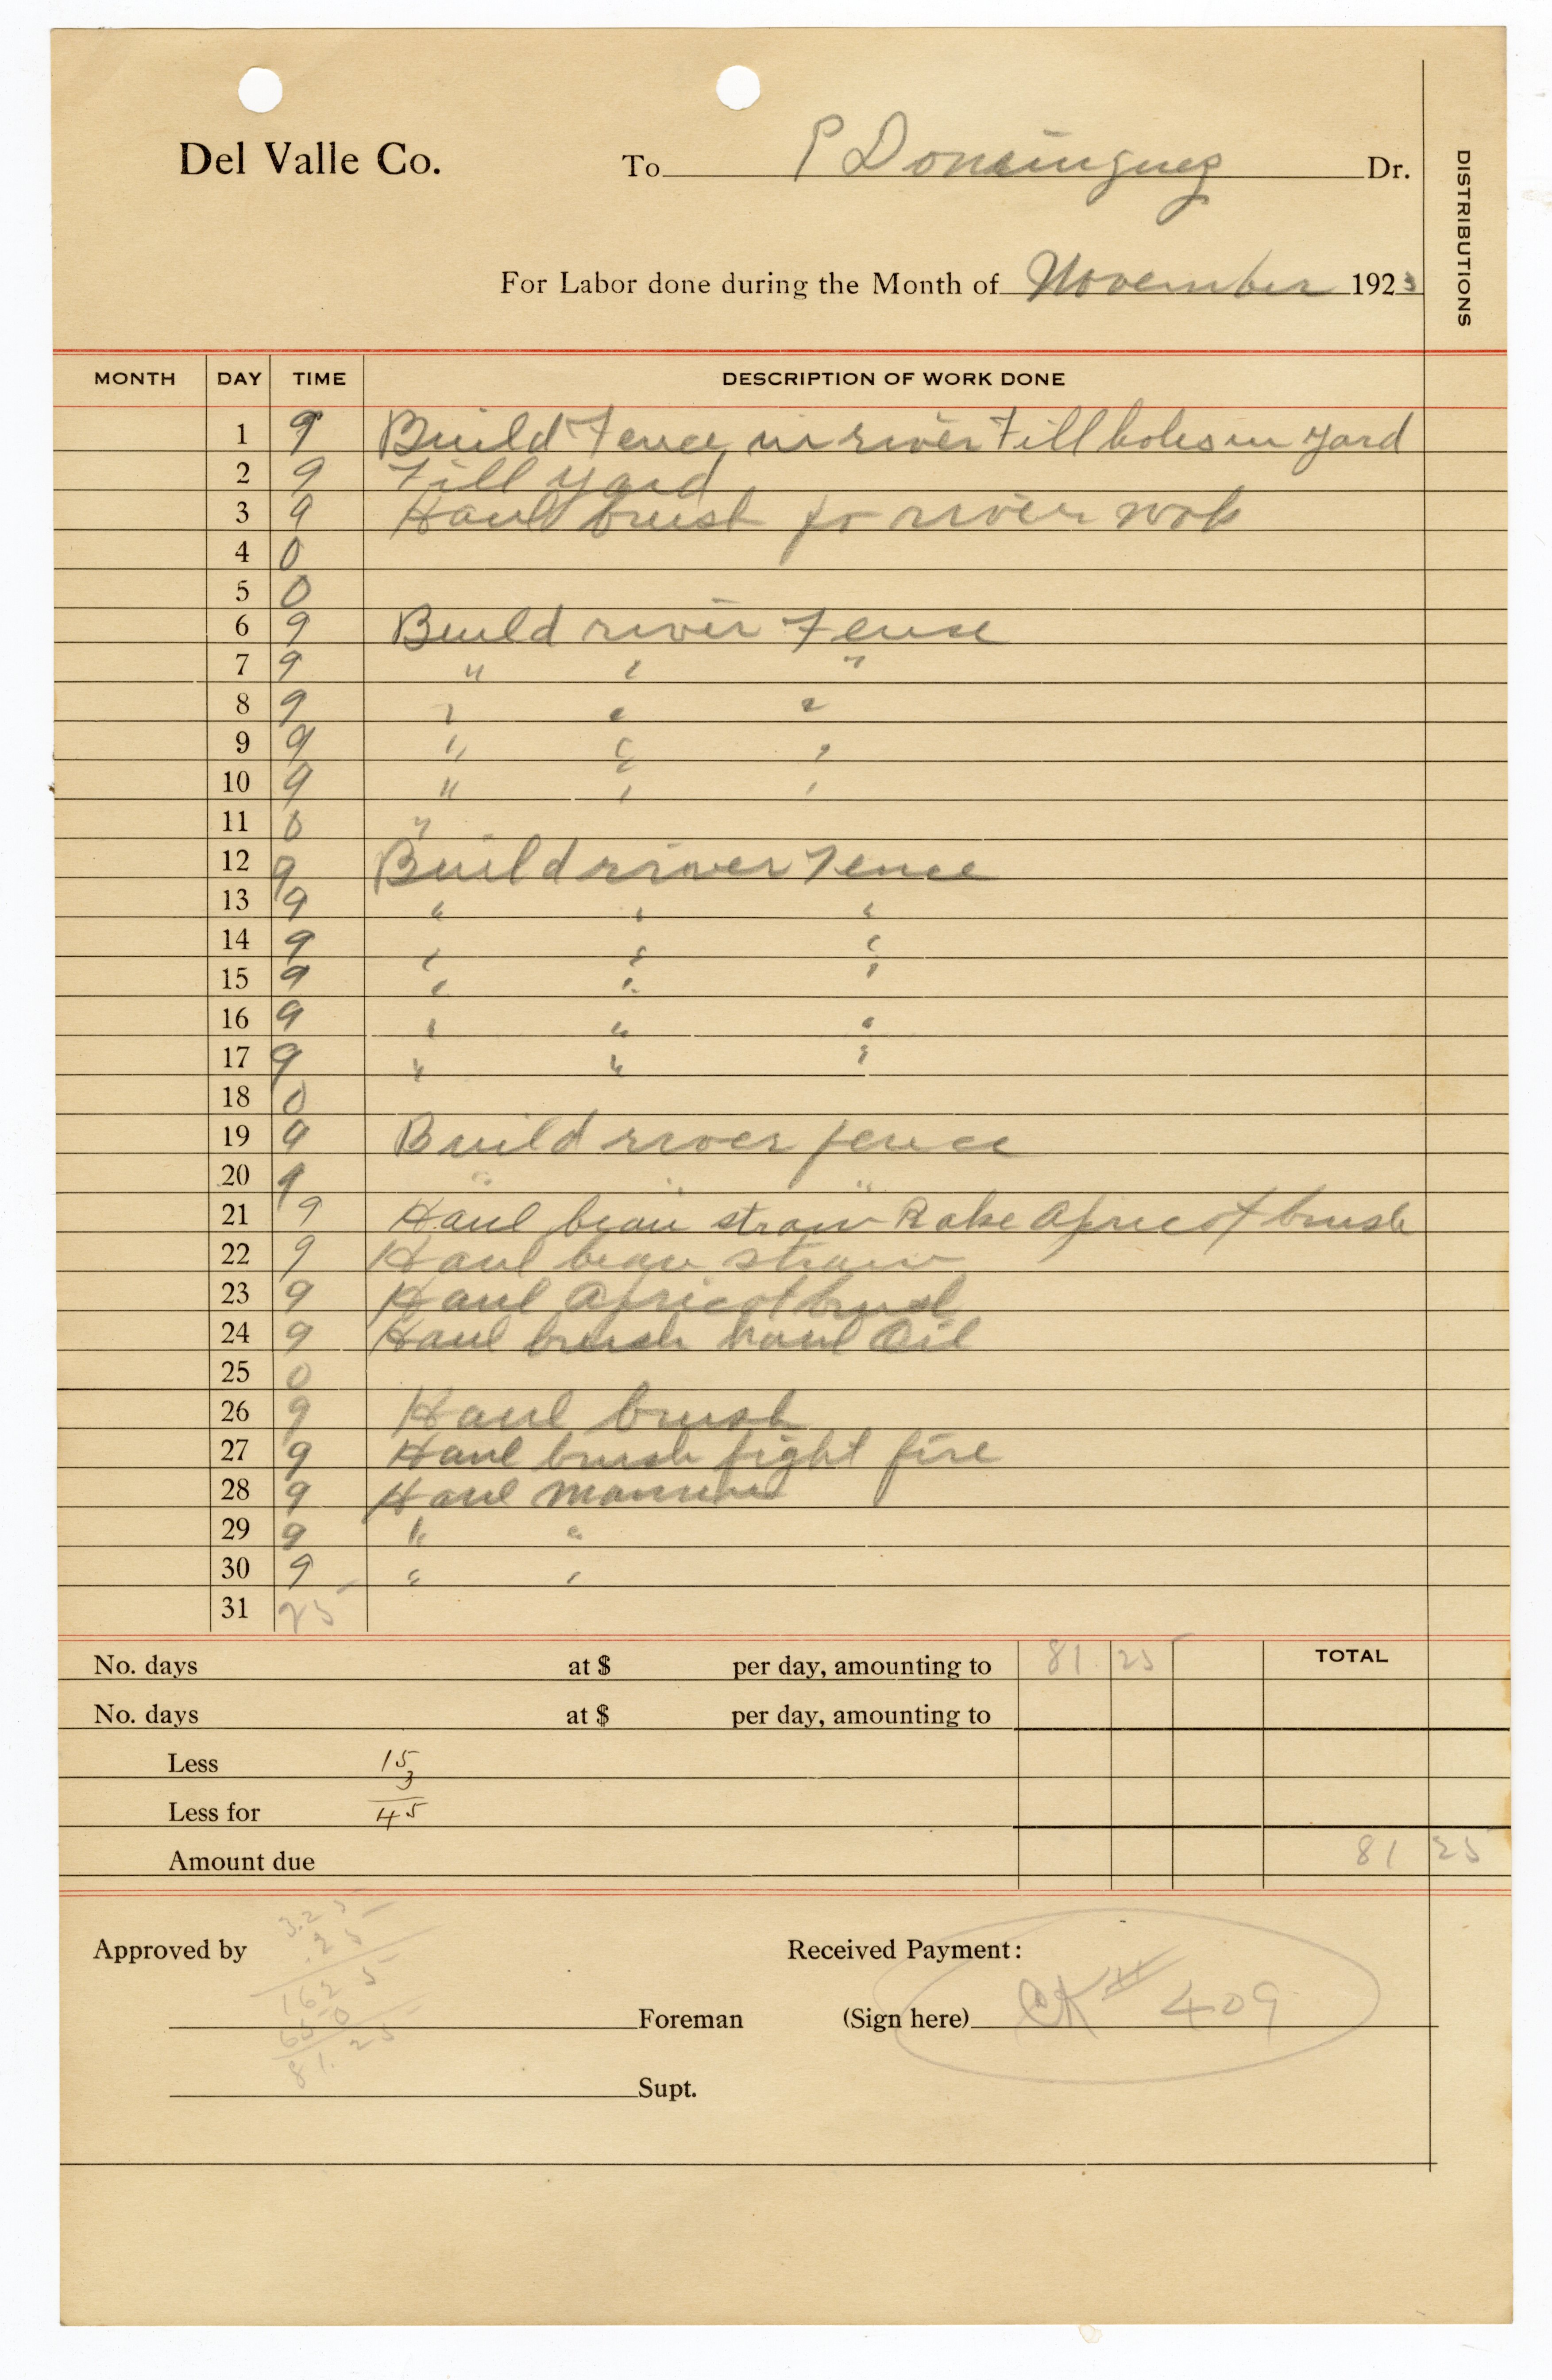 Del Valle Co. To P Dominguez Dr.
DISTRIBUTIONS
For Labor done during the Month of November 1923
MONTH DAY TIME DESCRIPTION OF WORK DONE
1 9 Build Fence in river Fill holes in yard
2 9 Fill yard
3 9 Haul brush for river work
4 0
5 0
6 9 Build river Fense
7 9 " " "
8 9 " " "
9 9 " " "
10 9 " " "
11 0 "
12 9 Build river Fence
13 9 " " "
14 9 " " "
15 9 " " "
16 9 " " "
17 9 " " "
18 0
19 9 Build river fence
20 9 " " "
21 9 Haul bean straw Rake Apricot brush
22 9 Haul bean straw
23 9 Haul Apricot brush
24 9 Haul brush haul Oil
25 0
26 9 Haul brush
27 9 Haul brush fight fire
28 9 Haul Manure
29 9 " "
30 9 " "
31 25
No. days at $ per day, amounting to 81.25 TOTAL
No. days at $ per day, amounting to
Less 15
3
Less for 45
Amount due 81 25
3.25
.25
1625
650
81.25
Approved by Received Payment:
Foreman (Sign here) CK# 409
Supt.